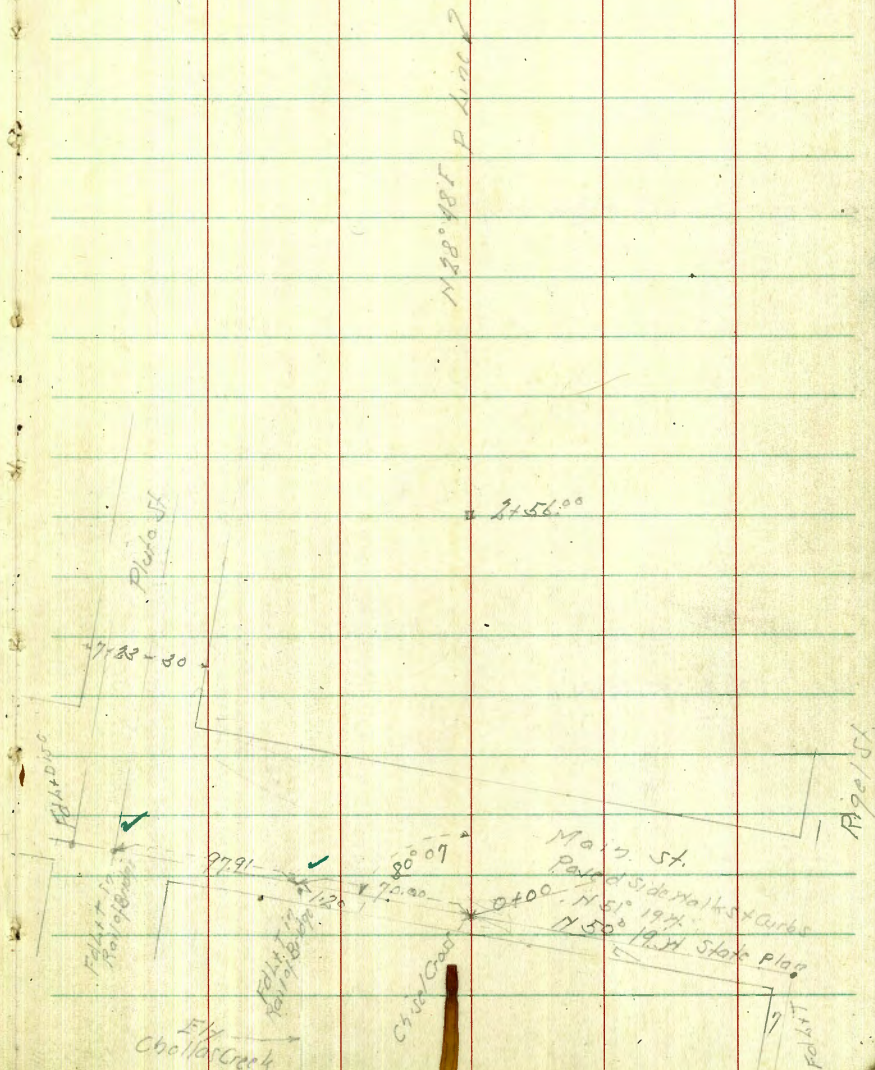 N 28° 48' E P Line
2+56.00
Pluto St
7+33-30
Rigel St.
Fd L+Disc
97.91
80° 07
71.20
70.00
0+00
Main St.
Paved Sidewalks + Curbs
N 51° 19 W
N 50° 19 W State Plan
7
7
Fd L+T in
Rail of Bridge
Fd L+T in
Rail of Bridge
Chisel Cross
Fd L+T
Ely
Chollas Creek